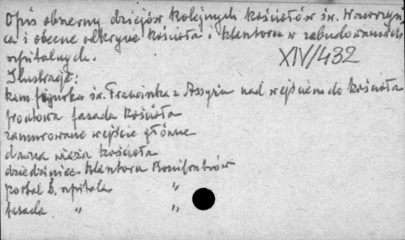 Opis obszerny dziejów kolejnych kościołów św. Wawrzyń-
ca i obecne odkrycie kościoła i klasztoru w zabudowaniach
szpitalnych.
XIV/432
Ilustracje:
kam. figurka św. Franciszka z Assyżu nad wejściem do kościoła
frontowa fasada kościoła
zamurowane wejście główne
dawna wieża kościoła
dziedziniec klasztoru Bonifratrów
portal b. szpitala "
fasada " "